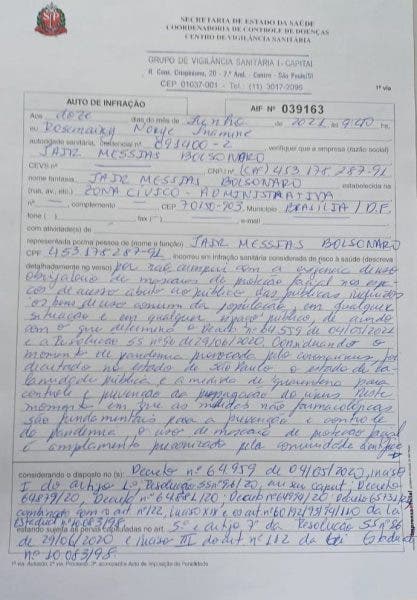 SECRETARIA DE ESTADO DA SAÚDE
COORDENADORIA DE CONTROLE DE DOENÇAS
CENTRO DE VIGILÂNCIA SANITÁRIA
GRUPO DE VIGILÂNCIA SANITÁRIA I - CAPITAL
R. Cons. Crispiniano, 20 - 2.º And. - Centro - São Paulo/SP
CEP 01037-001 - Tel.: (11) 3017-2095
1ª via
AUTO DE INFRAÇÃO AIF Nº 039163
Aos doze dias do mês de Junho de 2021, às 9:40 hs,
eu Rosemairy
autoridade sanitária, credencial nº 091400-2 verifiquei que a empresa (razão social)
JAIR MESSIAS BOLSONARO
CEVS nº CNPJ nº (CPF) 453.178.287-91
nome fantasia, JAIR MESSIAS BOLSONARO estabelecida na
(rua, av., etc.) ZONA CÍVICO-ADMINISTRATIVA
nº — complemento — CEP 70150-903 Município BRASÍLIA / D.F.
fone ( ) , fax ( ) e.mail
com atividade(s) de
representada por/na pessoa de (nome e função) JAIR MESSIAS BOLSONARO
CPF 453.178.287-91, incorreu em infração sanitária considerada de risco à saúde (descrever
detalhadamente no verso) por não cumprir com a exigência de uso
obrigatório de máscaras de proteção facial nos espa-
ços de acesso aberto ao público
os bens de uso comum da população, em qualquer
situação e em qualquer espaço público, de acordo
com o que determina o Decreto nº 64.959 de 04/05/2020
e a Resolução SS nº 96 de 29/06/2020. Considerando o
momento de pandemia provocado pelo coronavírus foi
decretado no estado de São Paulo o estado de ca-
lamidade pública e a medida de quarentena para
controle e prevenção da propagação do vírus. Neste
momento em que as medidas não farmacológicas
são fundamentais para a prevenção e controle
da pandemia o uso de máscara de proteção facial
é amplamente preconizado pela comunidade científica
considerando o disposto no (s): Decreto nº 64.959 de 04/05/2020, inciso
I do artigo 1º, Resolução SS nº 96/20, em seu caput, Decreto
64879/20, Decreto nº 64881/20, Decreto nº 64994/20
combinação com o art nº 122, inciso XIX e os art nº 60/92/93/94/110 da Lei
Estadual nº 10.083/98.
estando sujeita às penas capituladas no art. 5º e artigo 7º da Resolução SS nº 96
de 29/06/2020 e inciso III do artº 112 da Lei Estadual
nº 10.083/98.
1ª via: Autuado; 2ª via: Processo; 3ª: acompanhará Auto de Imposição de Penalidade